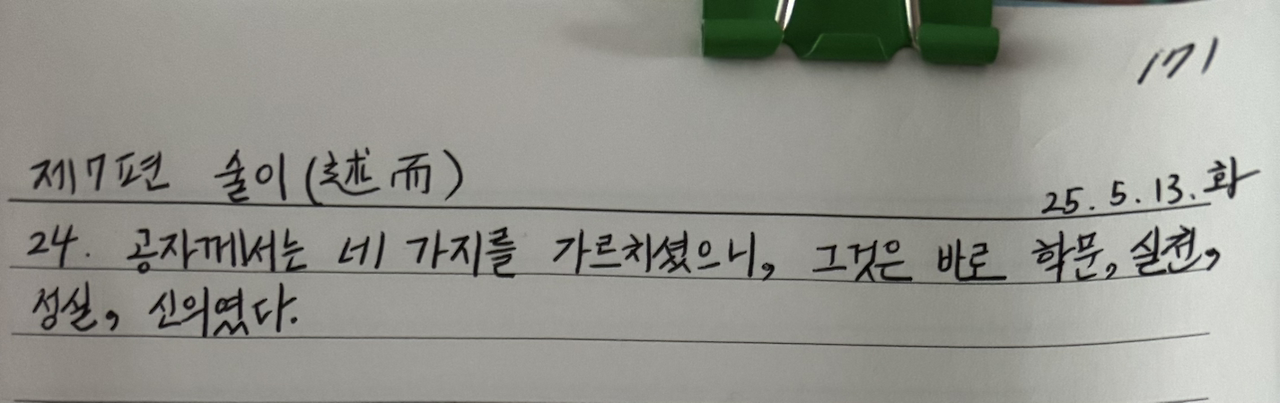 171
제7편 술이(述而)
25.5.13.화
24. 공자께서는 네 가지를 가르치셨으니, 그것은 바로 학문, 실천,
성실, 신의였다.